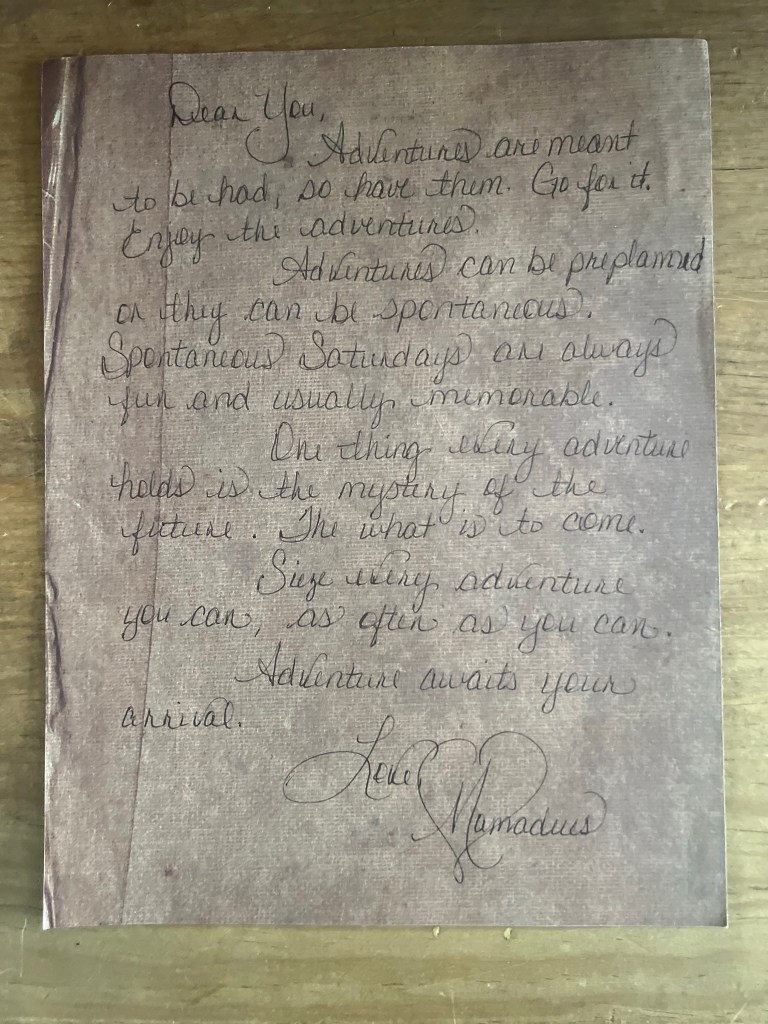 Dear You,
Adventures are meant
to be had, so have them. Go for it.
Enjoy the adventures.
Adventures can be preplanned
or they can be spontaneous.
Spontaneous Saturdays are always
fun and usually memorable.
One thing every adventure
holds is the mystery of the
future. The what is to come.
Sieze every adventure
you can, as often as you can.
Adventure awaits your
arrival.
Love